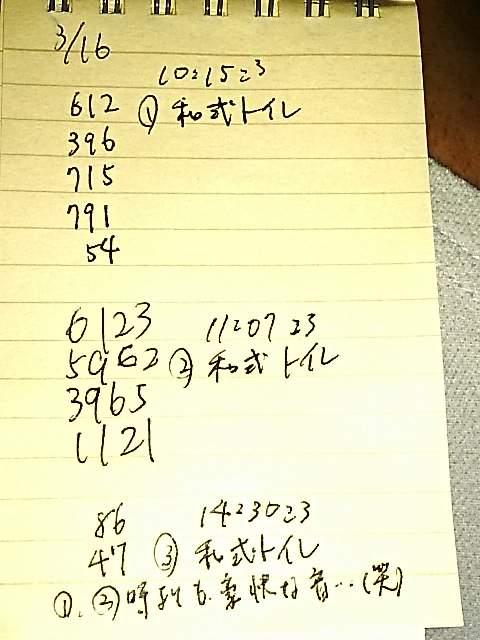 3/16
10:15:3
612 ① 和式トイレ
396
715
791
54
6123 11:07:3
5962 ② 和式トイレ
3965
1121
86 14:30:3
47 ③ 和式トイレ
①、②時より豪快な音…(笑)